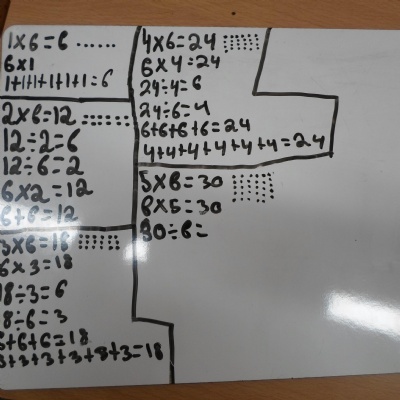 1x6=6
6x1
1+1+1+1+1+1=6
2x6=12
12÷2=6
12÷6=2
6x2=12
6+6=12
3x6=18
6x3=18
18÷3=6
18÷6=3
6+6+6=18
3+3+3+3+3+3=18
4x6=24
6x4=24
24÷4=6
24÷6=4
6+6+6+6=24
4+4+4+4+4+4=24
5x6=30
6x5=30
30÷6=